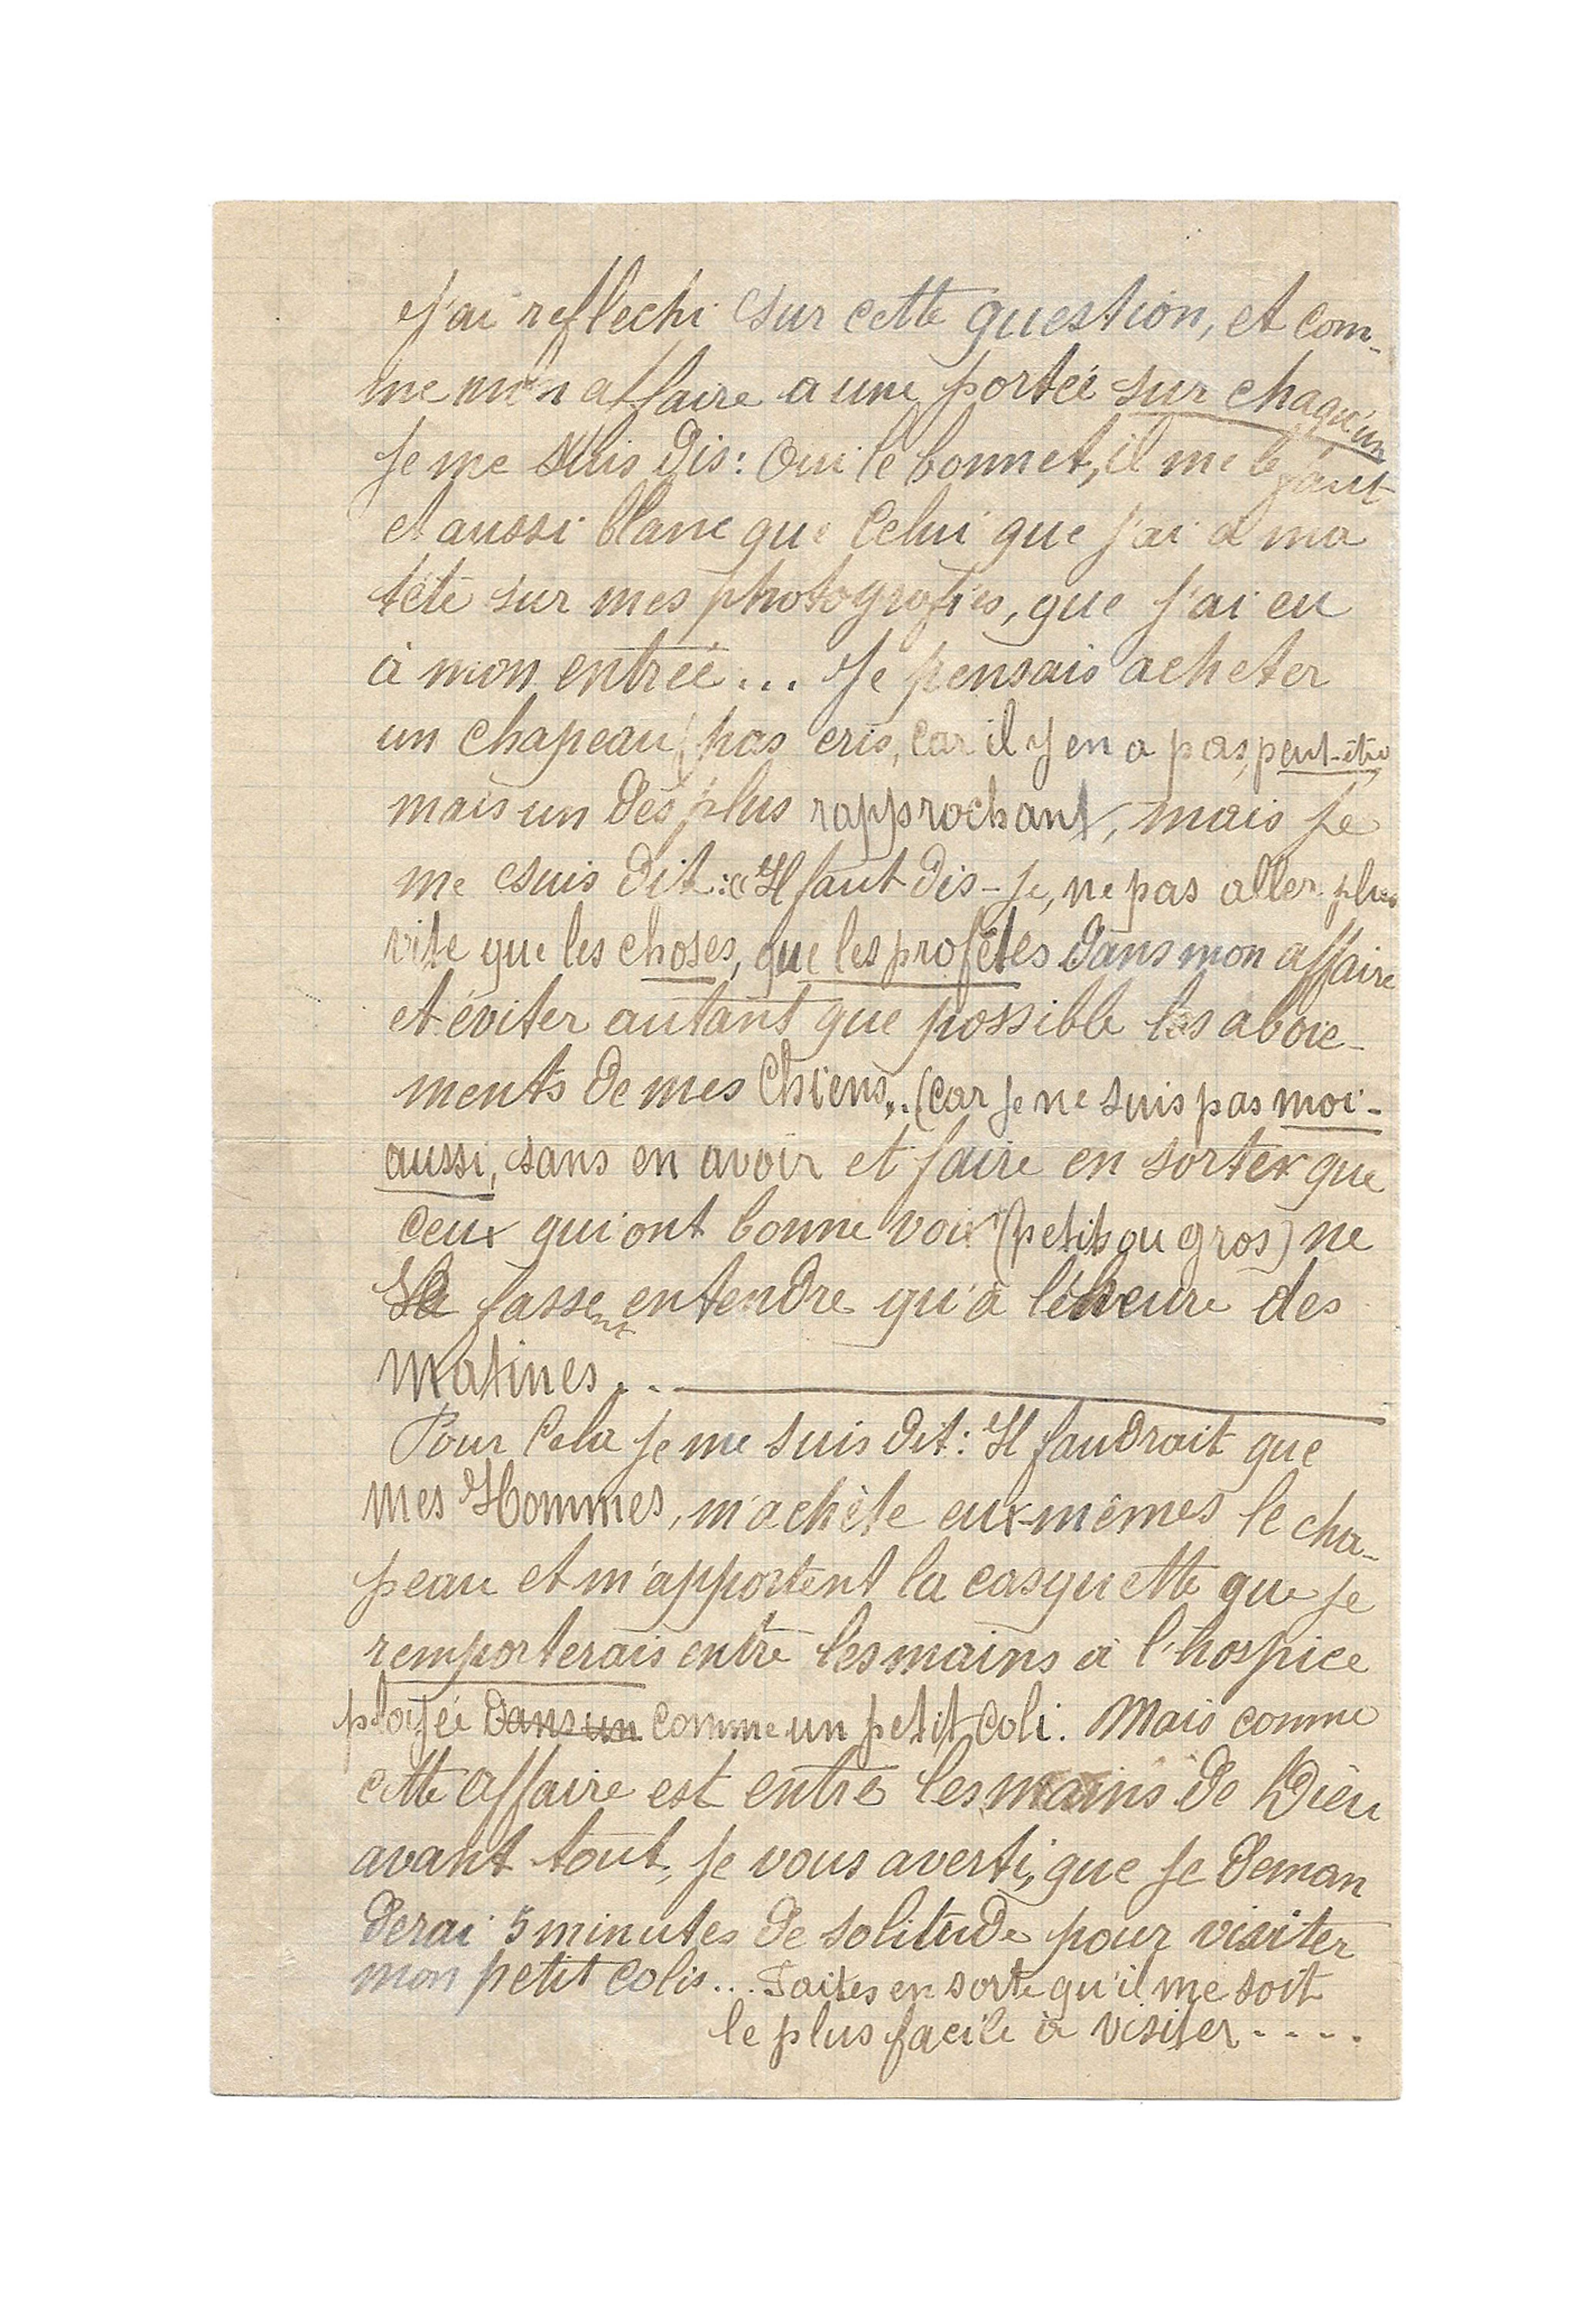 J'ai reflechi sur cette question, et com-
me mon affaire a une portée sur chaqu'un
Je me suis dis : Oui le bonnet, il me le faut
et aussi blanc que celui que j'ai à ma
tête sur mes photografies, que j'ai eu
à mon entrée... Je pensais acheter
un chapeau (pas cris, car il y en a pas, peut-être
mais un des plus rapprochant, mais je
me suis dit : « Il faut dis-je, ne pas aller plus
vite que les choses, que les profètes dans mon affaire
et éviter autant que possible les aboie-
ments de mes Chiens... (car je ne suis pas moi-
aussi, sans en avoir et faire en sorte que
ceux qui ont bonne voix (petits ou gros) ne
la fassent entendre qu'à l'heure des
Matines...
Pour cela je me suis dit : Il faudrait que
mes Hommes, m'achète eux-mêmes le cha-
peau et m'apportent la casquette que je
remporterais entre les mains à l'hospice
ployée dans un comme un petit coli. Mais comme
cette affaire est entre les mains de Dieu
avant tout, je vous averti, que je deman
derai 5 minutes de solitude pour visiter
mon petit colis... Faites en sorte qu'il me soit
le plus facile à visiter....